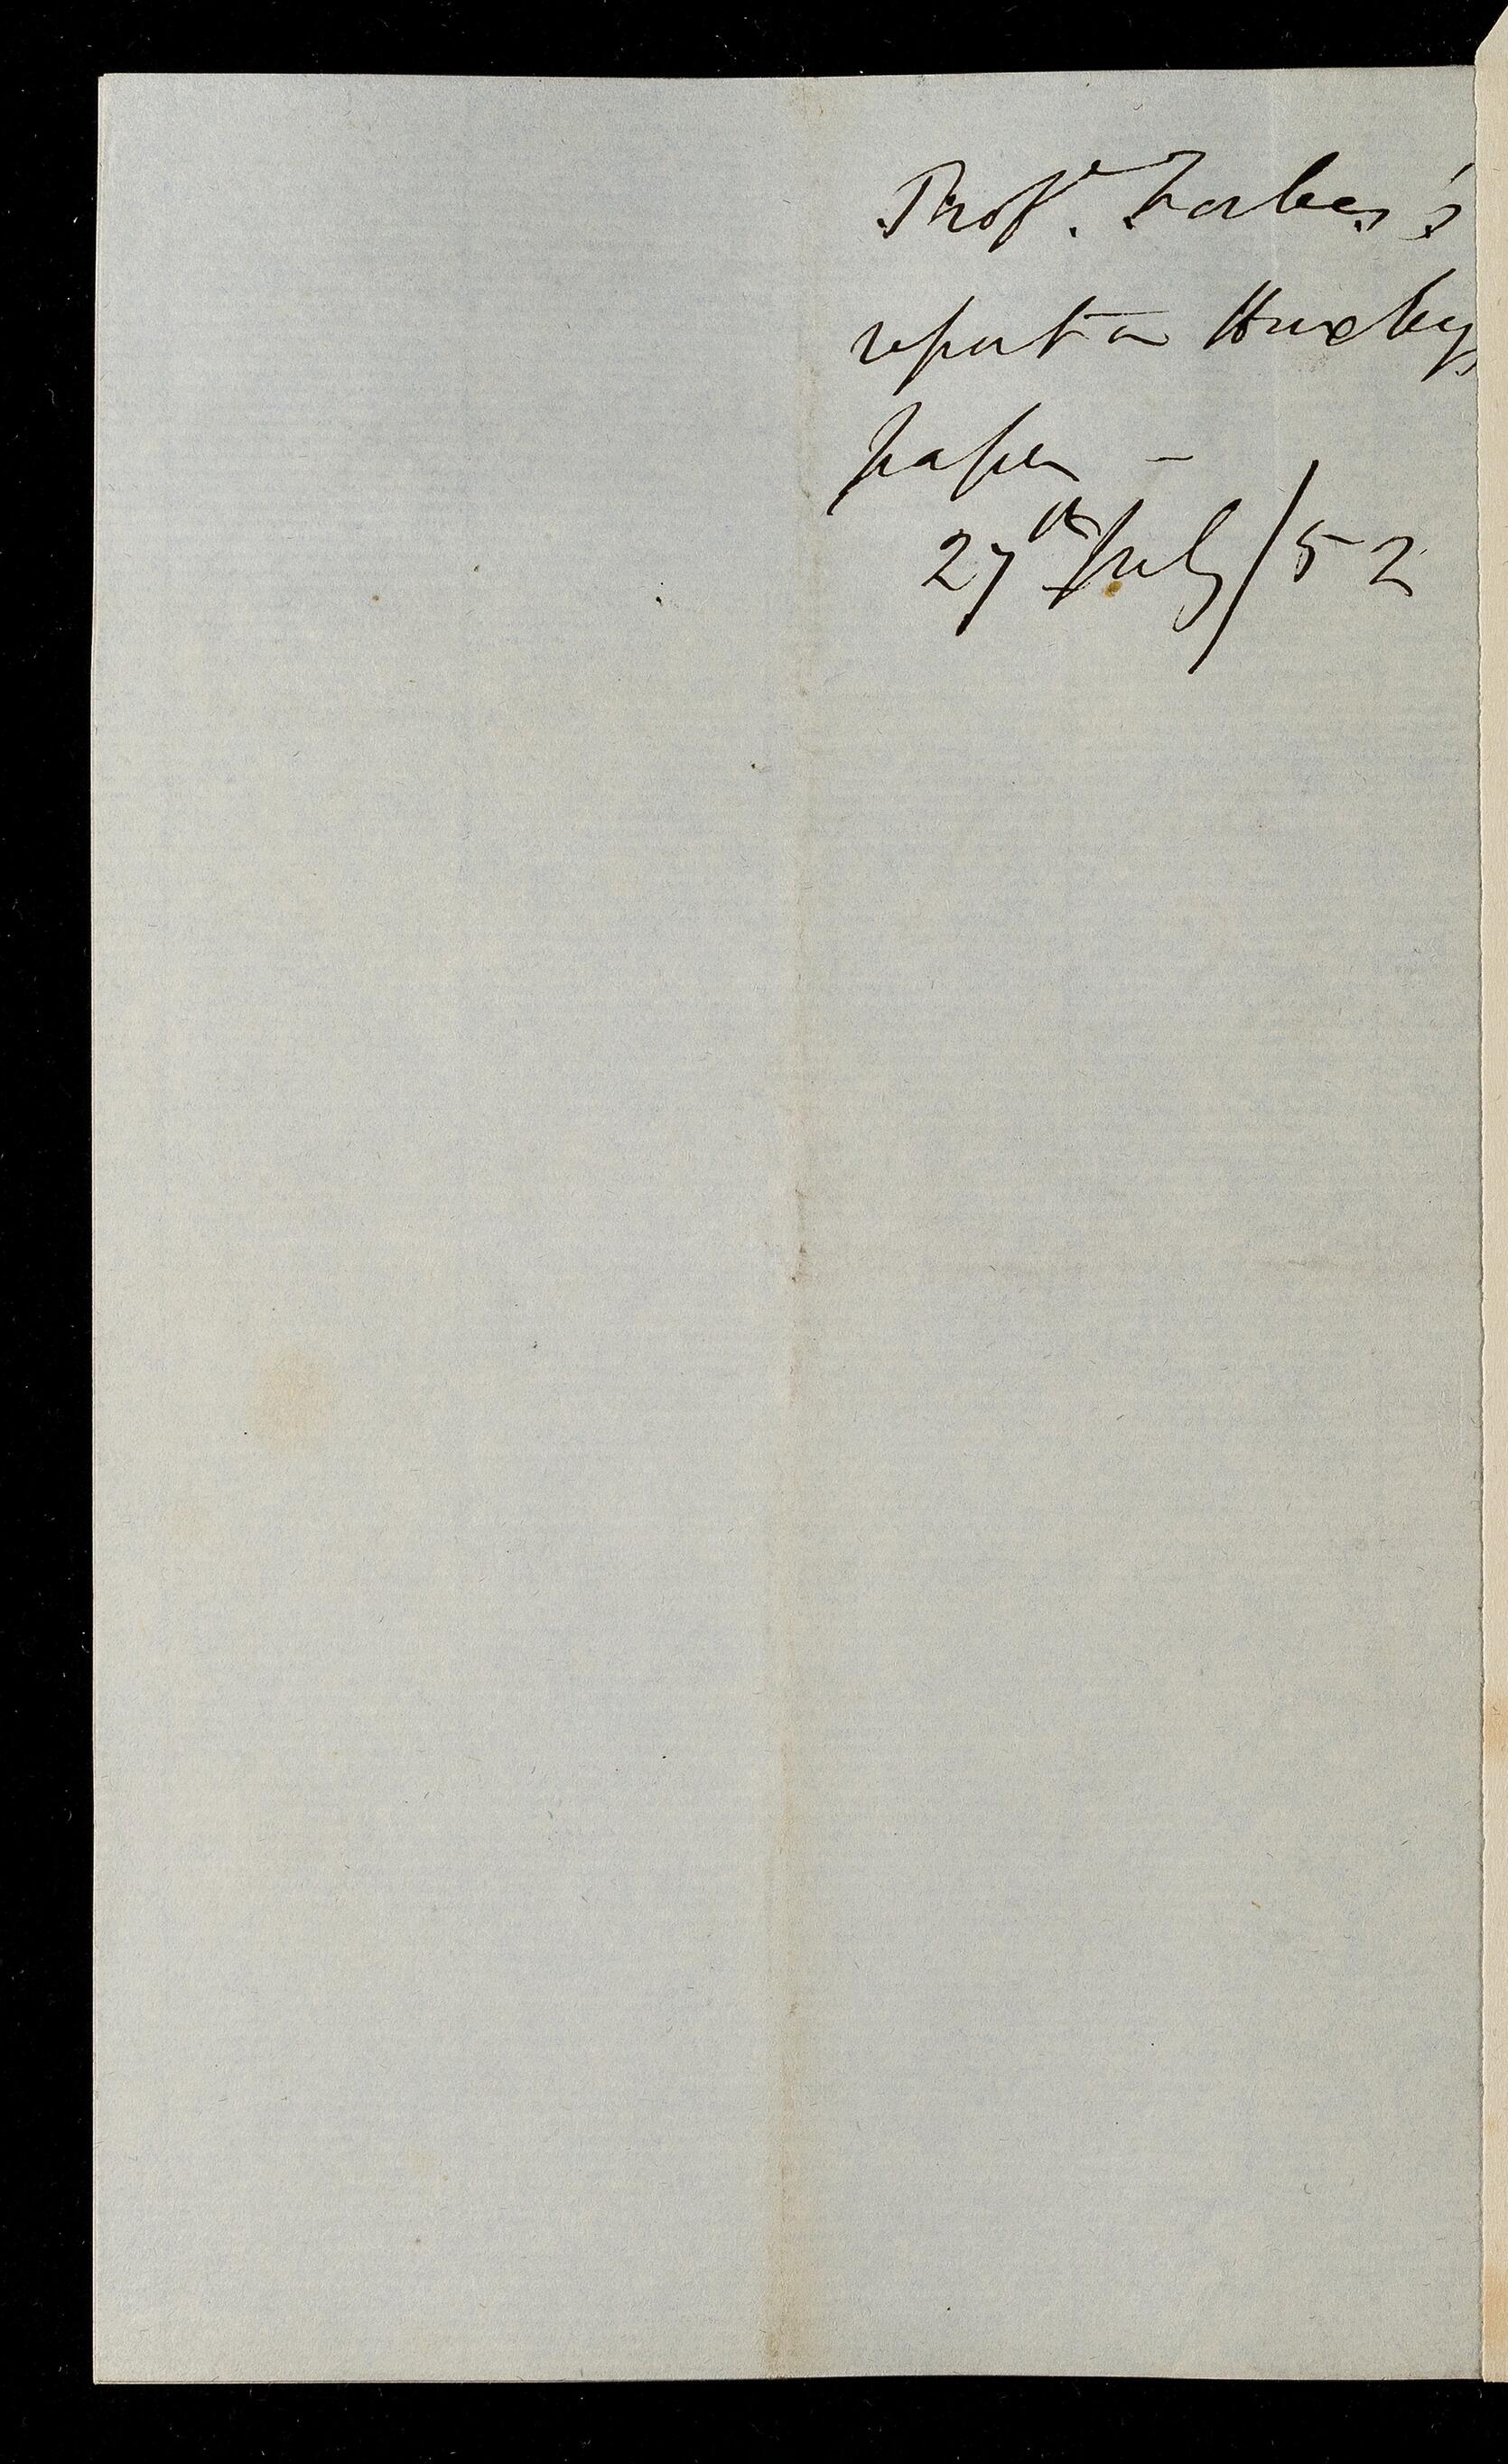 Prof.r Forbes's
report on Huxley's
paper –
27th July/52